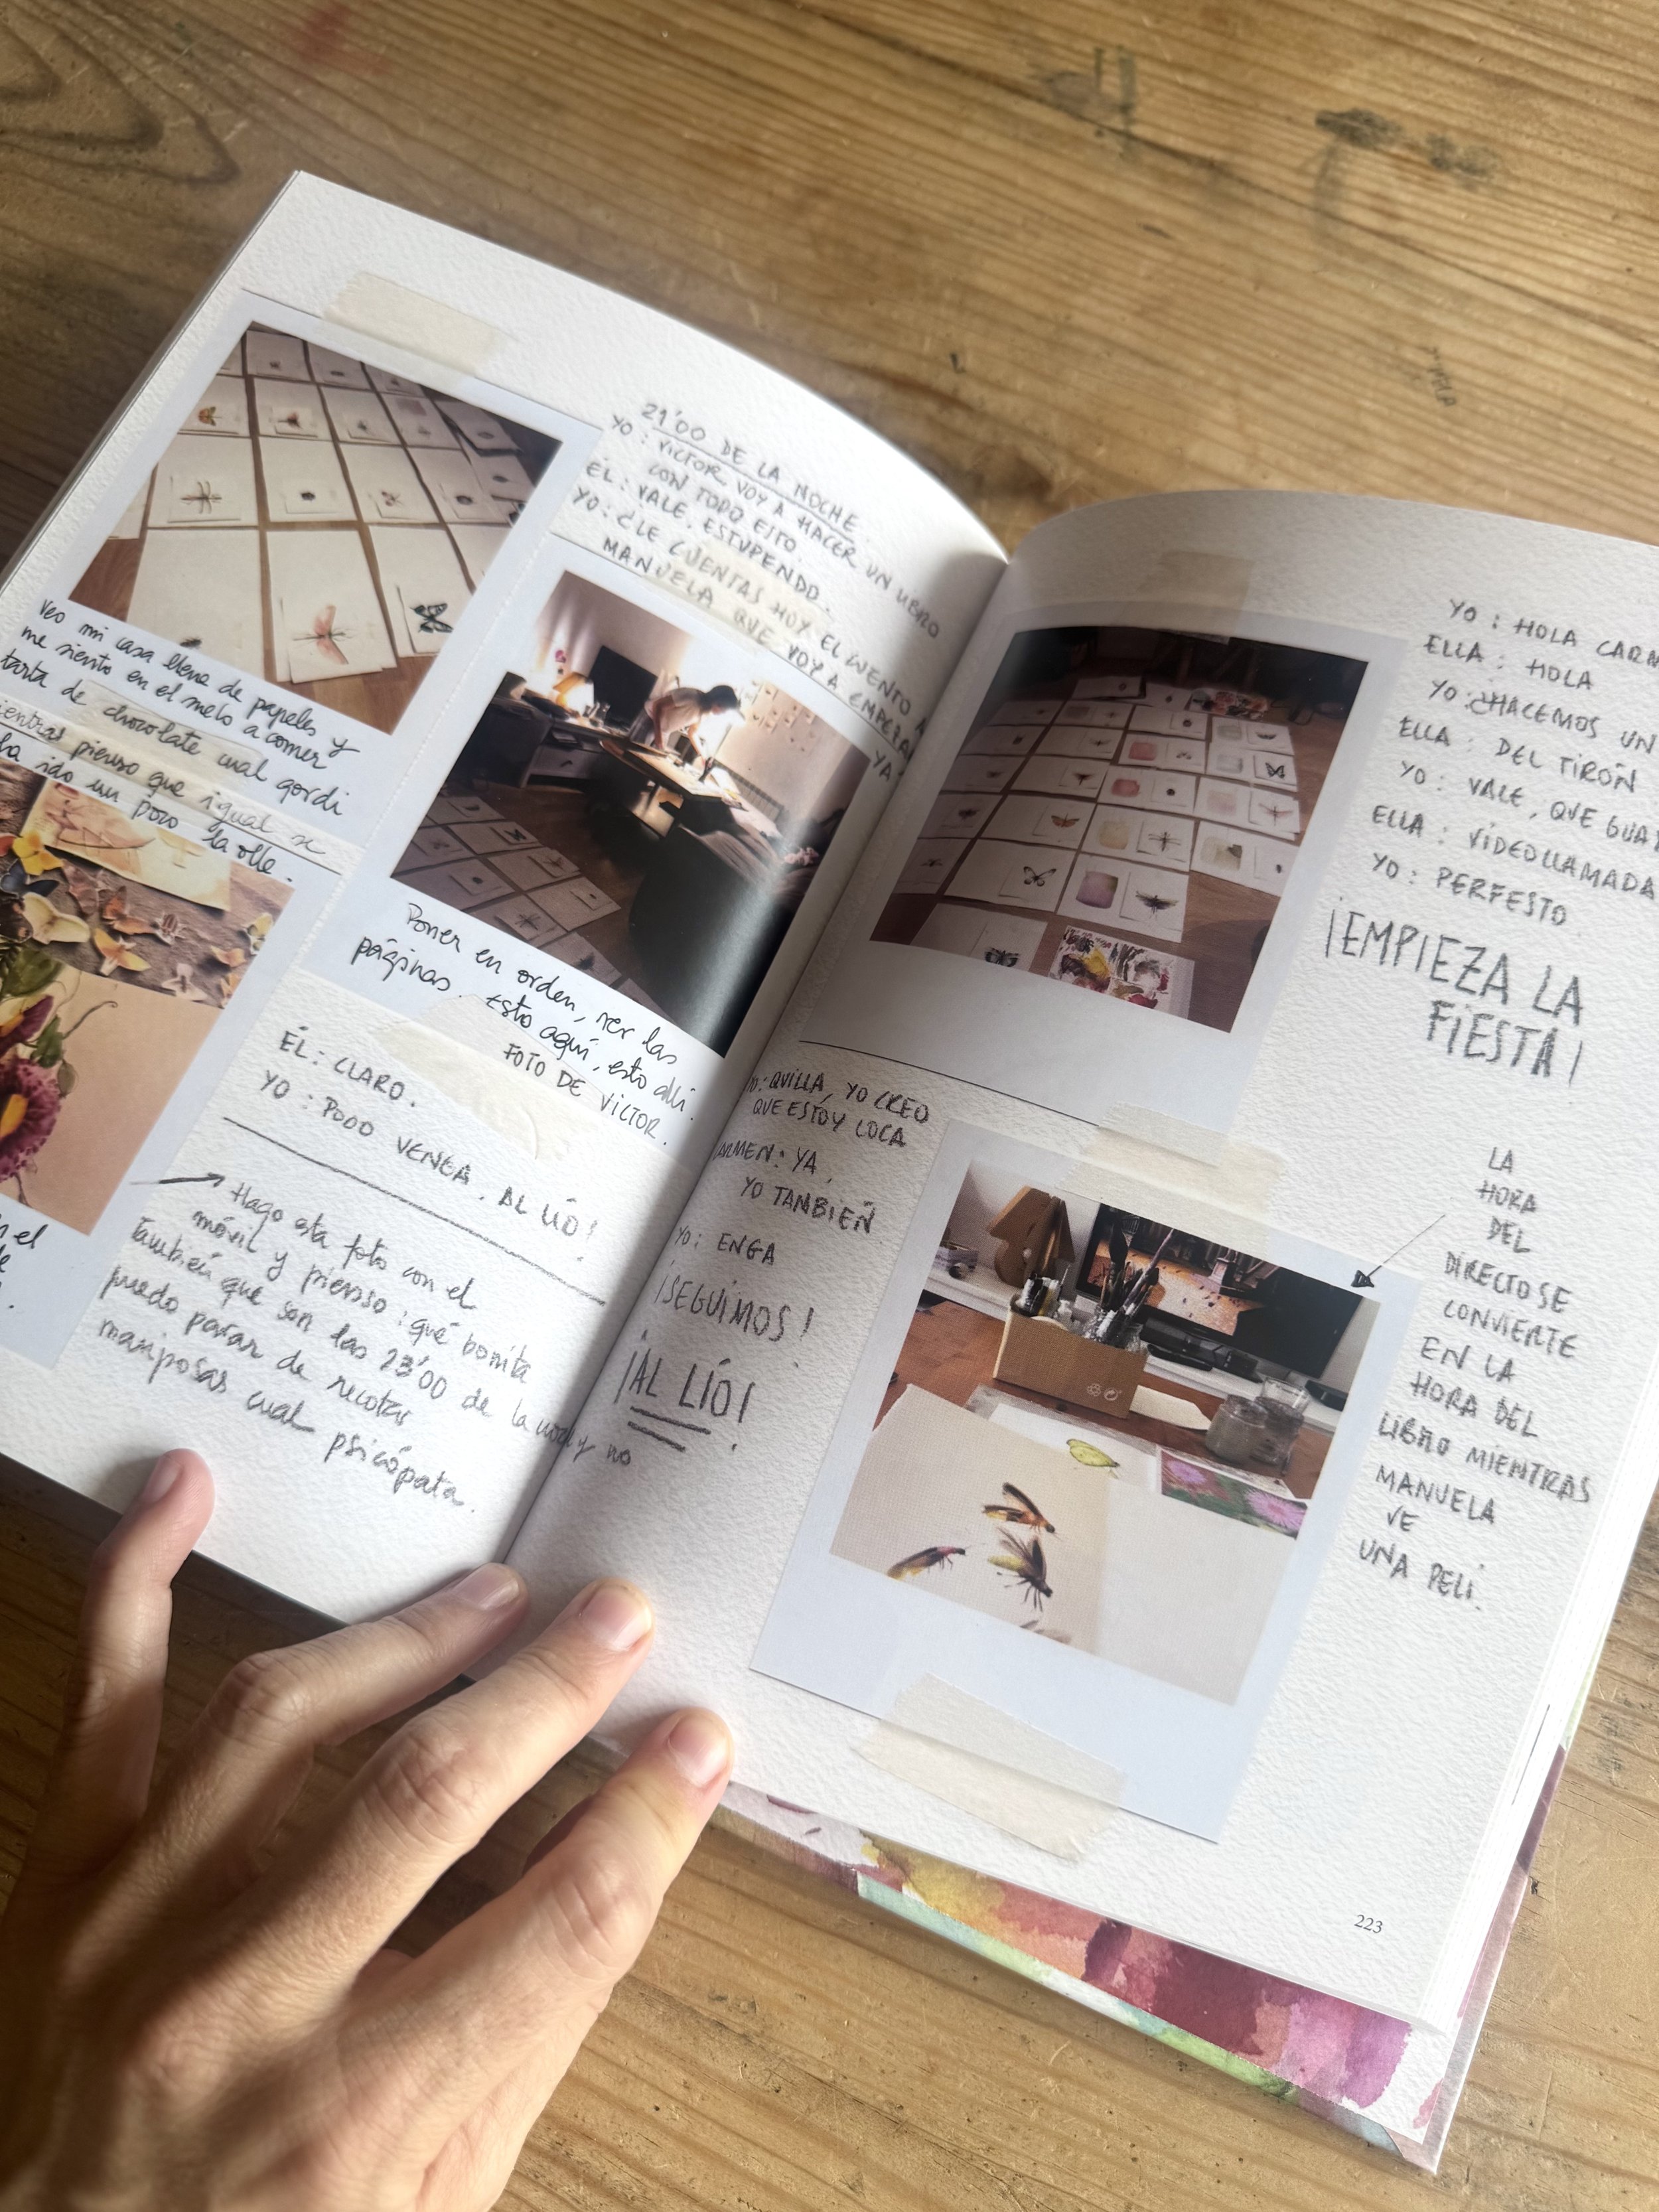 Veo mi casa llena de papeles y
me siento en el suelo a comer
tarta de chocolate cual gordi
ientras pienso que igual se
ha ido un poco la olla.
n el
21'00 DE LA NOCHE.
YO: VICTOR VOY A HACER UN LIBRO
CON TODO ESTO.
ÉL: VALE. ESTUPENDO.
YO: ¿LE CUENTAS HOY EL CUENTO A
MANUELA QUE VOY A EMPEZAR
YA?
Poner en orden, ver las
páginas. Esto aquí, esto allí.
FOTO DE VICTOR.
ÉL: CLARO.
YO: PODO VENGA. AL LÍO!
Hago esta foto con el
móvil y pienso: qué bonita
También que son las 23'00 de la noche y no
puedo parar de recortar
mariposas cual psicópata.
YO: HOLA CARM
ELLA: HOLA
YO: ¿HACEMOS UN
ELLA: DEL TIRÓN
YO: VALE, QUE GUAY
ELLA: VIDEOLLAMADA
YO: PERFESTO.
¡EMPIEZA LA
FIESTA!
YO: QUILLA, YO CREO
QUE ESTOY LOCA
CARMEN: YA,
YO TANBIEÑ
YO: ENGA
¡SEGUIMOS!
¡AL LÍO!
LA
HORA
DEL
DIRECTO SE
CONVIERTE
EN LA
HORA DEL
LIBRO MIENTRAS
MANUELA
VE
UNA PELI.
223